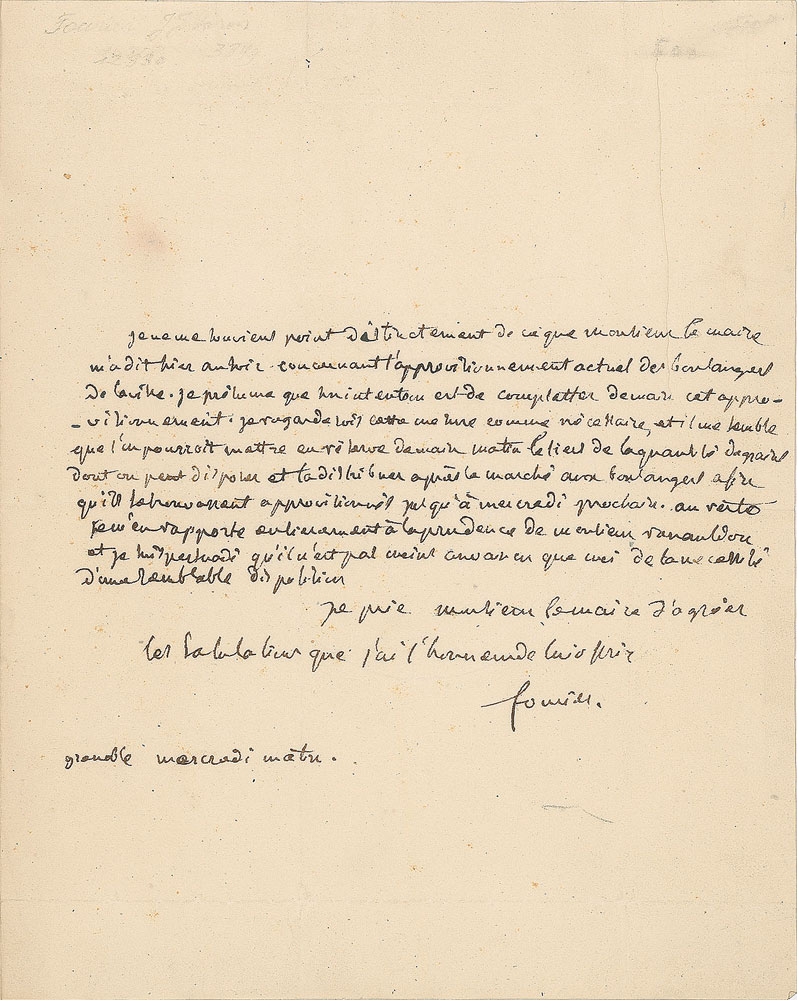 je ne me souviens point distinctement de ce que monsieur le maire
m'a dit hier au soir concernant l'approvisionnement actuel des boulangers
de la ville. je présume que son intention est de completter demain cet appro-
-visionnement. je regarderois cette mesure comme nécessaire, et il me semble
que l'on pourroit mettre en réserve demain matin le tiers de la quantité de grains
dont on peut disposer et la distribuer après le marché aux boulangers afin
qu'ils se trouvassent approvisionnés jusqu'à mercredi prochain. au reste
je m'en rapporte entierement à la prudence de monsieur renauldon
et je suis persuadé qu'il n'est pas moins convaincu que moi de la necessité
d'une semblable disposition
je prie monsieur le maire d'agréer
les salutations que j'ai l'honneur de lui offrir
fourier.
grenoble mercredi matin.